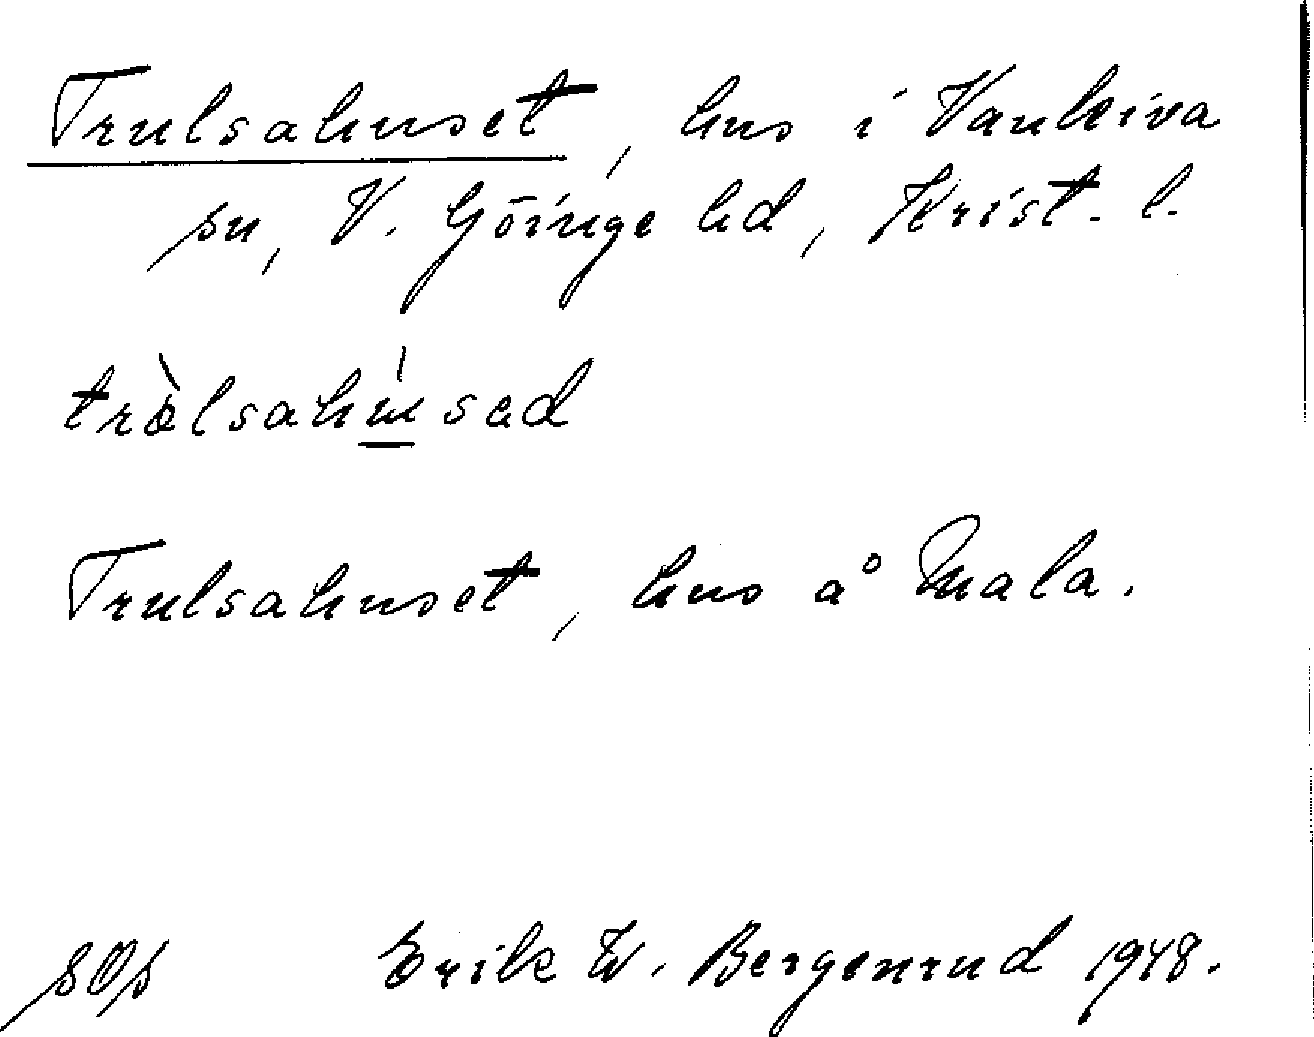 Trulsahuset, hus i Vankiva
sn, V. Göinge hd, Krist. l.
trùlsahúsed
Trulsahuset, hus å Mala.
Erik W. Bergenrud 1948.